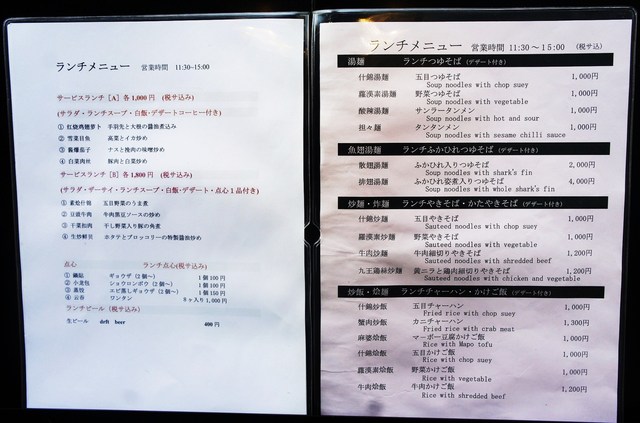 ランチメニュー 営業時間 11:30~15:00
サービスランチ [A] 各1,000円 (税サ込み)
(サラダ・ランチスープ・白飯・デザートコーヒー付き)
手羽先と大根の醤油煮込み
② 雪菜目魚 高菜とイカ炒め
ナスと挽肉の味噌炒め
④ 白菜肉丝 豚肉と白菜炒め
サービスランチ [B] 各1,800円 (税サ込み)
(サラダ・ザーサイ・ランチスープ・白飯・デザート・点心1品付き)
① 素烩什锦 五目野菜のうま煮
② 豆豉牛肉 牛肉黒豆ソースの炒め
③ 干菜扣肉 干し野菜入り豚の角煮
④ 生炒鲜贝 ホタテとブロッコリーの特製醤油炒め
点心 ランチ点心(税サ込み)
① 鍋貼 ギョウザ(2個~) 1個100円
② 小龙包 ショウロンポウ(2個~) 1個100円
③ 蒸饺 エビ蒸しギョウザ(2個~) 1個150円
④ 云吞 ワンタン 8ヶ入り1,000円
ランチビール(税サ込み)
生ビール deft beer 400円
ランチメニュー 営業時間 11:30~15:00 (税サ込)
湯麺 ランチつゆそば (デザート付き)
什錦湯麺 五目つゆそば 1,000円
Soup noodles with chop suey
羅漢素湯麺 野菜つゆそば 1,000円
Soup noodles with vegetable
酸辣湯麺 サンラータンメン 1,000円
Soup noodles with hot and sour
担々麺 タンタンメン 1,000円
Soup noodles with sesame chilli sauce
魚翅湯麺 ランチふかひれつゆそば (デザート付き)
散翅湯麺 ふかひれ入りつゆそば 2,000円
Soup noodles with shark's fin
排翅湯麺 ふかひれ姿煮入りつゆそば 4,000円
Soup noodles with whole shark's fin
炒麺・炸麺 ランチやきそば・かたやきそば (デザート付き)
什錦炒麺 五目やきそば 1,000円
Sauteed noodles with chop suey
羅漢素炒麺 野菜やきそば 1,000円
Sauteed noodles with vegetable
牛肉炒麺 牛肉細切りやきそば 1,200円
Sauteed noodles with shredded beef
九王鶏絲炒麺 黄ニラと鶏肉細切りやきそば 1,200円
Sauteed noodles with chicken and vegetable
炒飯・烩麺 ランチチャーハン・かけご飯 (デザート付き)
什錦炒飯 五目チャーハン 1,000円
Fried rice with chop suey
蟹肉炒飯 カニチャーハン 1,300円
Fried rice with crab meat
麻婆烩飯 マーボー豆腐かけご飯 1,000円
Rice with Mapo tofu
什錦烩飯 五目かけご飯 1,000円
Rice with chop suey
羅漢素烩飯 野菜かけご飯 1,000円
Rice with vegetable
牛肉烩飯 牛肉かけご飯 1,200円
Rice with shredded beef